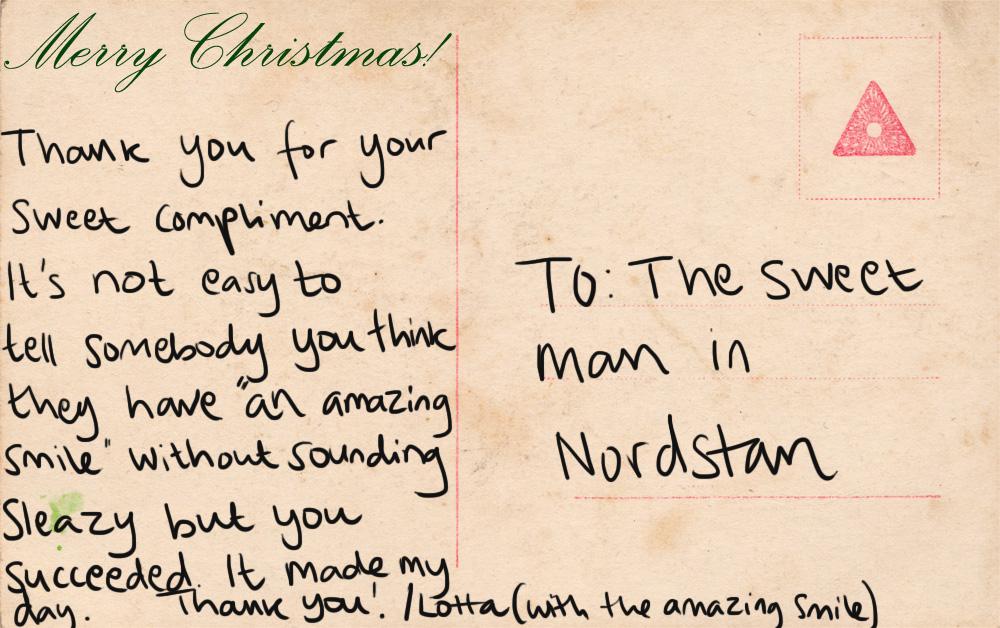 Merry Christmas!
Thank you for your
sweet compliment.
It's not easy to
tell somebody you think
they have "an amazing
smile" without sounding
sleazy but you
succeeded. It made my
day. Thank you! /Lotta (with the amazing smile)
To: The sweet
man in
Nordstan